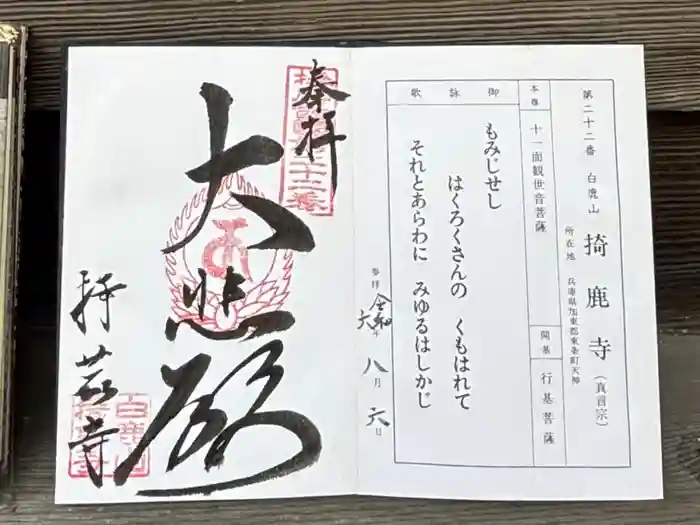 第二十二番 白鹿山 掎鹿寺（真言宗）
所在地 兵庫県加東郡東条町天神
本尊 十一面観世音菩薩
開基 行基菩薩
御詠歌
もみじせし
はくろくさんの くもはれて
それとあらわに みゆるはしかじ
参拝 令和 六年 八月 六日
奉拝
大悲殿
掎鹿寺
白鹿山